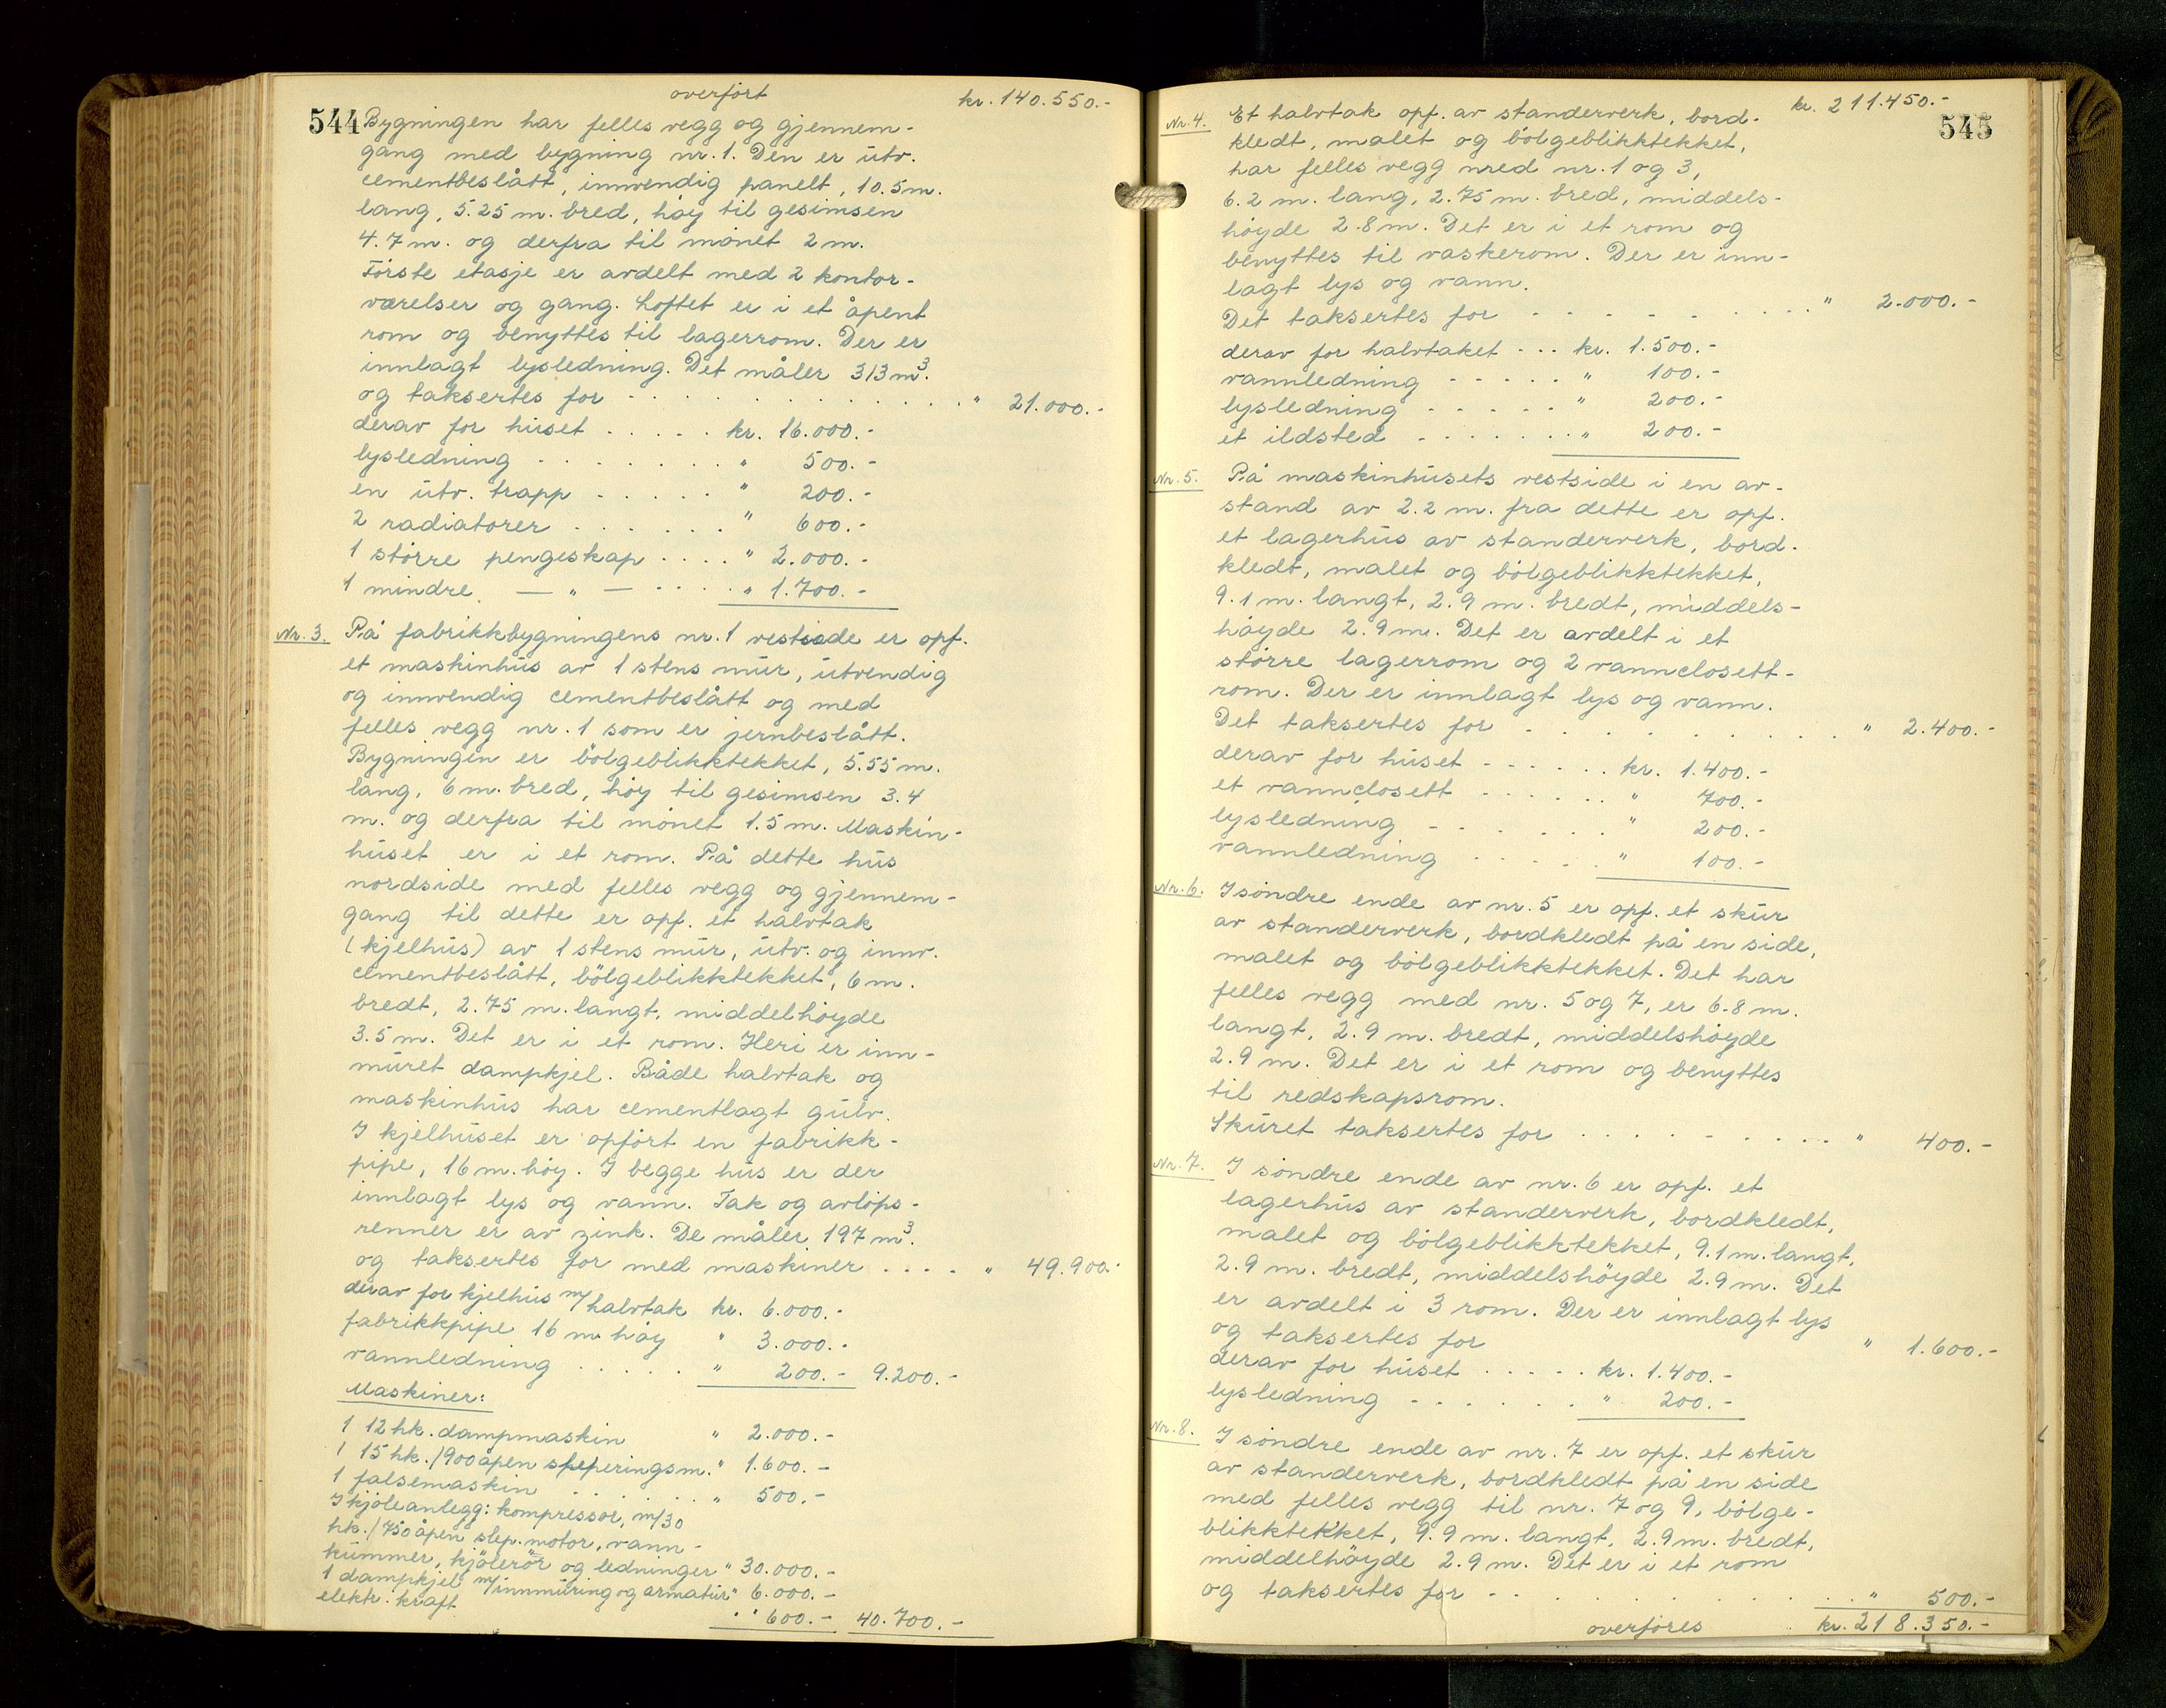 544
overført kr. 140.550.-
Bygningen har felles vegg og gjennem-
gang med bygning nr. 1. Den er utv.
cementbeslått, innvendig panelt, 10.5 m.
lang, 5.25 m. bred, høy til gesimsen
4.7 m. og derfra til mønet 2 m.
Første etasje er avdelt med 2 kontor-
værelser og gang. Loftet er i et åpent
rom og benyttes til lagerrom. Der er
innlagt lysledning. Det måler 313 m³.
og taksertes for - . . . . . . . . . . " 21.000.-
derav for huset . . . . . kr. 16.000.-
lysledning . . . . . . . " 500.-
en utv. trapp . . . . . " 200.-
2 radiatorer . . . . . . " 600.-
1 større pengeskap . . . . " 2.000.-
1 mindre — " — . . . . " 1.700.-
Nr. 3. På fabrikkbygningens nr. 1 vestside er opf.
et maskinhus av 1 stens mur, utvendig
og innvendig cementbeslått og med
felles vegg nr. 1 som er jernbeslått.
Bygningen er bølgeblikktekket, 5.55 m.
lang, 6 m. bred, høy til gesimsen 3.4
m. og derfra til mønet 1.5 m. Maskin-
huset er i et rom. På dette hus
nordside med felles vegg og gjennem-
gang til dette er opf. et halvtak
(kjelhus) av 1 stens mur, utv. og innv.
cementbeslått, bölgeblikktekket, 6 m.
bredt, 2.75 m. langt, middelhøyde
3.5 m. Det er i et rom. Heri er inn-
muret dampkjel. Både halvtak og
maskinhus har cementlagt gulv.
I kjelhuset er opført en fabrikk-
pipe, 16 m. høy. I begge hus er der
innlagt lys og vann. Tak og avløps-
renner er av zink. De måler 197 m³.
og taksertes for med maskiner . . . . " 49.900.-
derav for kjelhus m/ halvtak kr. 6.000.-
fabrikkpipe 16 m. høy " 3.000.-
vannledning . . . . . " 200.- 9.200.-
Maskiner:
1 12 hk. dampmaskin " 2.000.-
1 15 hk. /900 åpen sleperingsm. " 1.600.-
1 falsemaskin . . . . . . " 500.-
1 kjøleanlegg: kompressor, m/30
hk. /750 åpen slep. motor, vann-
kummer, kjølerör og ledninger " 30.000.-
1 dampkjel m/innmuring og armatur " 6.000.-
elektr. kraft . " 600.- 40.700.-
545
kr. 211.450.-
Nr. 4. Et halvtak opf. av standerverk, bord-
kledt, malet og bølgeblikktekket,
har felles vegg med nr. 1 og 3,
6.2 m. lang, 2.75 m. bred, middels-
høyde 2.8 m. Det er i et rom og
benyttes til vaskerom. Der er inn-
lagt lys og vann.
Det taksertes for - - - - - . . . . " 2.000.-
derav for halvtaket - . . kr. 1.500.-
vannledning - - - - . " 100.-
lysledning - - - - . " 200.-
et ildsted - . . . . . . " 200.-
Nr. 5. På maskinhusets vestside i en av-
stand av 2.2 m. fra dette er opf.
et lagerhus av standerverk, bord-
kledt, malet og bølgeblikktekket,
9.1 m. langt, 2.9 m. bredt, middels-
høyde 2.9 m. Det er avdelt i et
større lagerrom og 2 vannclosett-
rom. Der er innlagt lys og vann.
Det taksertes for - . . . . . . . . . " 2.400.-
derav for huset - - - . . . kr. 1.400.-
et vannclosett - - - . . . " 700.-
lysledning - - . . . . " 200.-
vannledning . . . . . " 100.-
Nr. 6. I søndre ende av nr. 5 er opf. et skur
av standerverk, bordkledt på en side,
malet og bølgeblikktekket. Det har
felles vegg med nr. 5 og 7, er 6.8 m.
langt, 2.9 m. bredt, middelshøyde
2.9 m. Det er i et rom og benyttes
til redskapsrom.
Skuret taksertes for . . . . - . . . . . " 400.-
Nr. 7. I søndre ende av nr. 6 er opf. et
lagerhus av standerverk, bordkledt,
malet og bølgeblikktekket, 9.1 m. langt,
2.9 m. bredt, middelshøyde 2.9 m. Det
er avdelt i 3 rom. Der er innlagt lys
og taksertes for " 1.600.-
derav for huset . . . . . kr. 1.400.-
lysledning - . . . . . . " 200.-
Nr. 8. I søndre ende av nr. 7 er opf. et skur
av standerverk, bordkledt på en side
med felles vegg til nr. 7 og 9, bølge-
blikktekket, 9.9 m. langt, 2.9 m. bredt,
middelhøyde 2.9 m. Det er i et rom
og taksertes for - . . . . . . . . . . " 500.-
overføres kr. 218.350.-